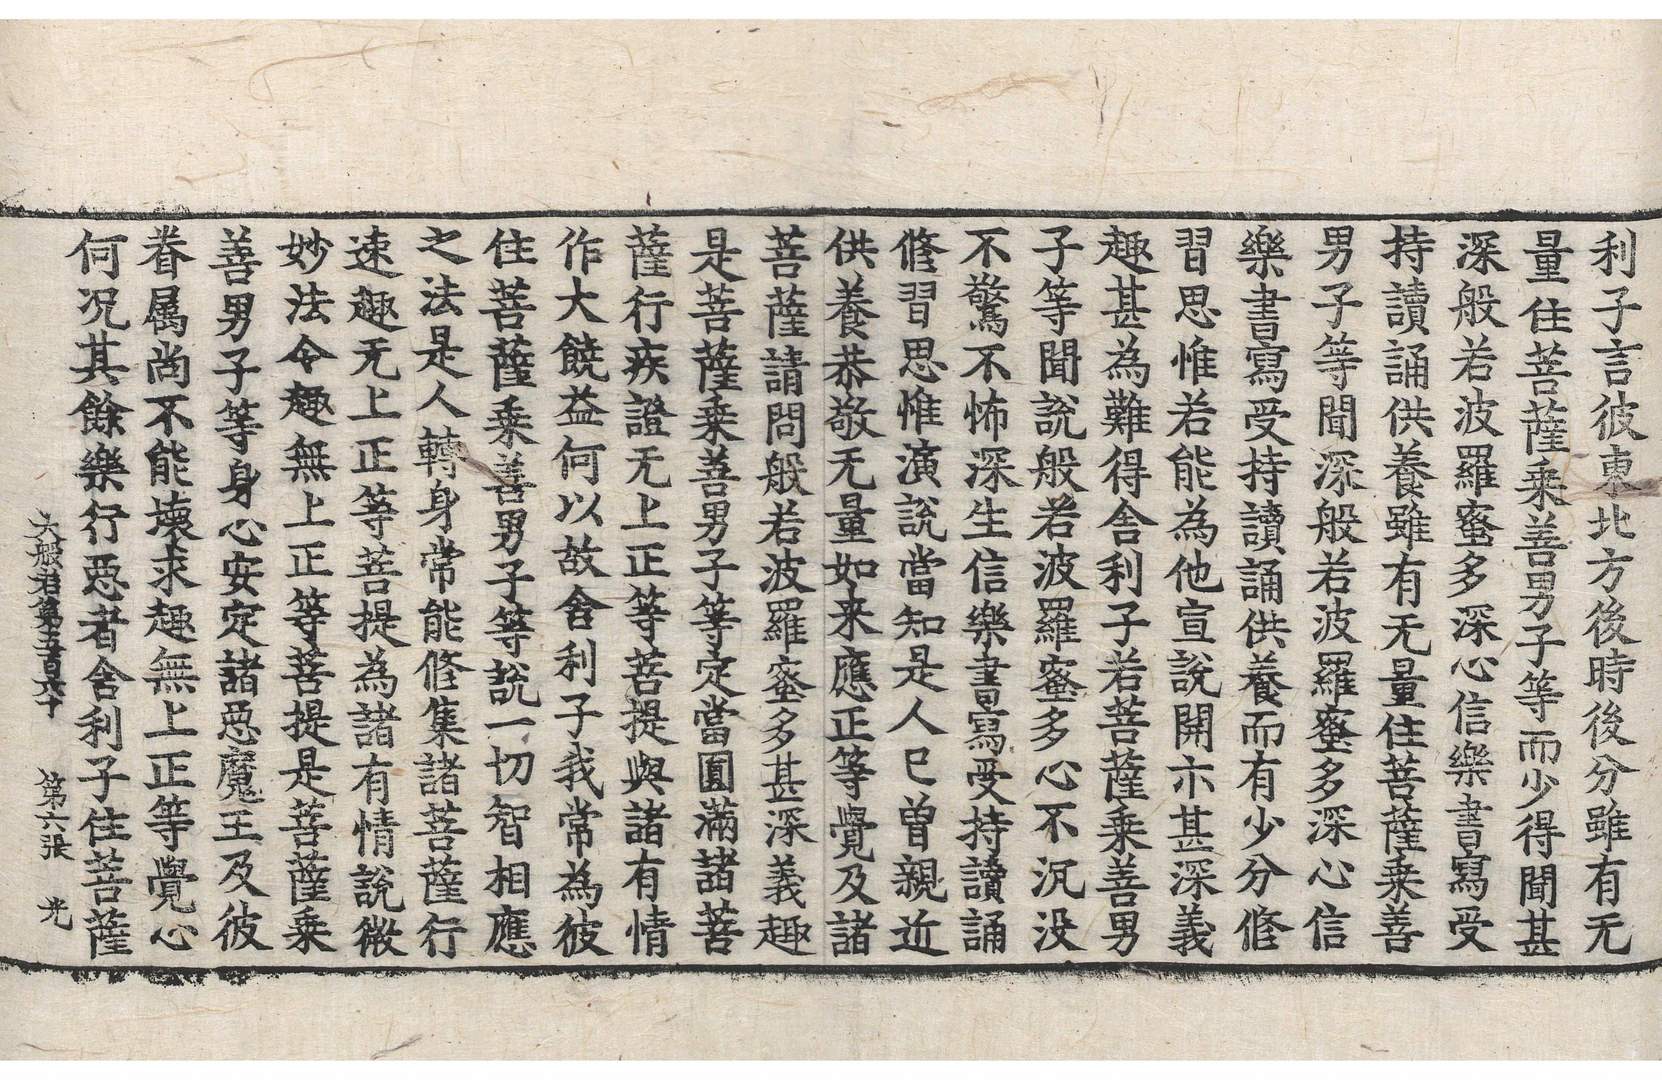 利子言彼東北方後時後分雖有无
量住菩薩乘善男子等而少得聞甚
深般若波羅蜜多深心信樂書寫受
持讀誦供養雖有无量住菩薩乘善
男子等聞深般若波羅蜜多深心信
樂書寫受持讀誦供養而有少分脩
習思惟若能為他宣說開示甚深義
趣甚為難得舍利子若菩薩乘善男
子等聞說般若波羅蜜多心不沉没
不驚不怖深生信樂書寫受持讀誦
脩習思惟演說當知是人已曾親近
供養恭敬无量如来應正等覺及諸
菩薩請問般若波羅蜜多甚深義趣
是菩薩乘善男子等定當圓滿諸菩
薩行疾證无上正等菩提與諸有情
作大饒益何以故舍利子我常為彼
住菩薩乘善男子等說一切智相應
之法是人轉身常能脩集諸菩薩行
速趣无上正等菩提為諸有情說微
妙法令趣無上正等菩提是菩薩乘
善男子等身心安定諸惡魔王及彼
眷屬尚不能壞求趣無上正等覺心
何况其餘樂行惡者舍利子住菩薩
大般若第五百六十 第六張 光